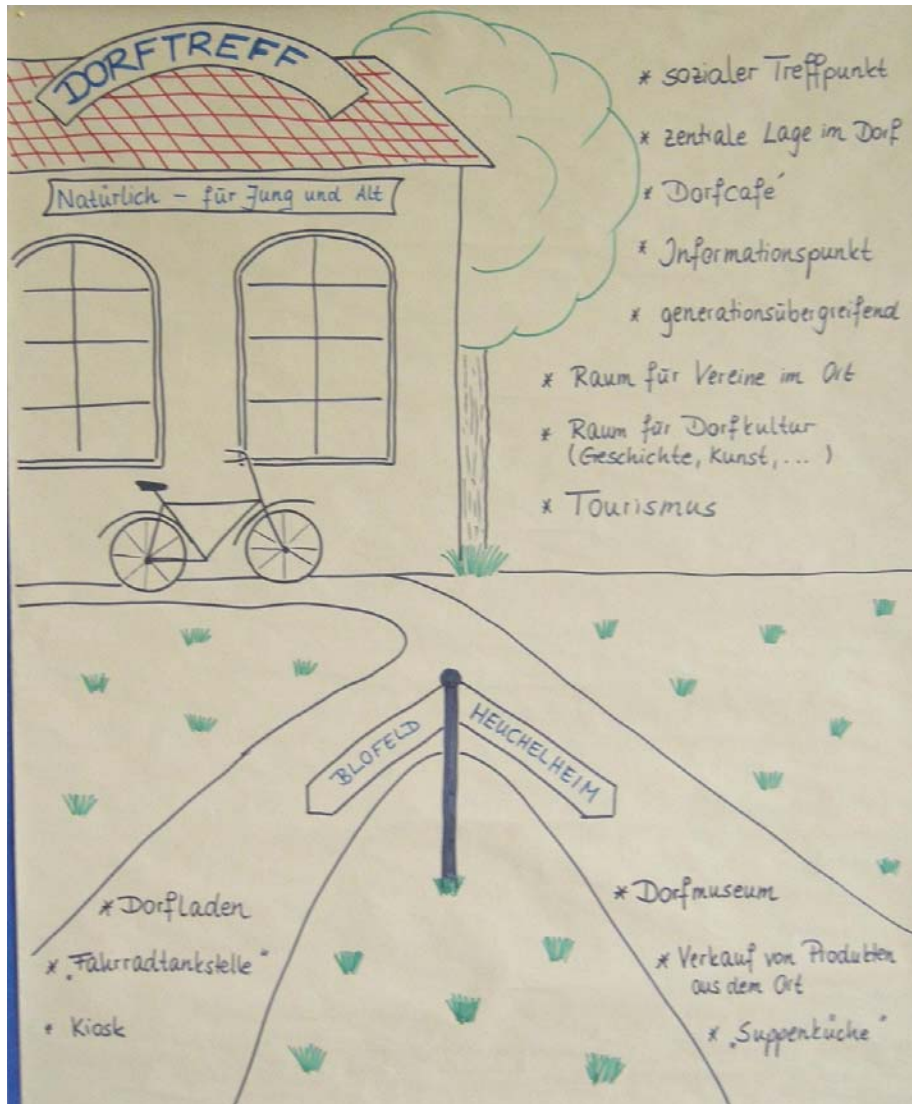 DORFTREFF
Natürlich - für Jung und Alt
* sozialer Treffpunkt
* zentrale Lage im Dorf
* Dorfcafé
* Informationspunkt
* generationsübergreifend
* Raum für Vereine im Ort
* Raum für Dorfkultur
(Geschichte, Kunst, ... )
* Tourismus
BLOFELD
HEUCHELHEIM
* Dorfladen
* „Fahrradtankstelle"
* Kiosk
* Dorfmuseum
* Verkauf von Produkten
aus dem Ort
* „Suppenküche"